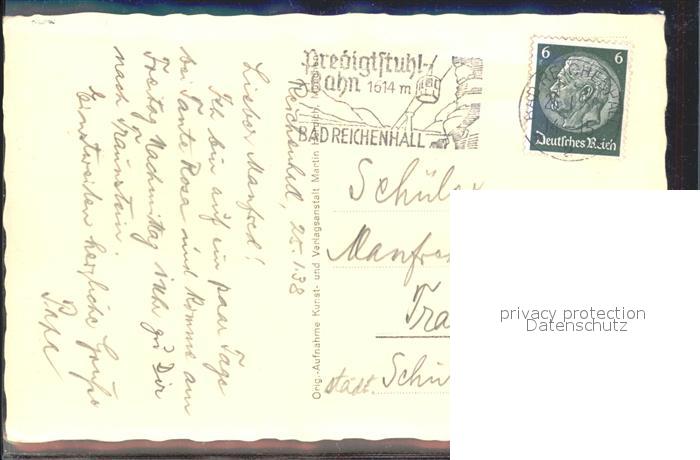 Reichenhall, 25.1.38
Lieber Manfred!
Ich bin auf ein paar Tage
bei Tante Rosa und komme am
Freitag Nachmittag sicher zu Dir
nach Traunstein.
Einstweilen herzliche Grüße
Papa
Orig.-Aufnahme Kunst- und Verlagsanstalt Martin
Predigtstuhl-
Bahn 1614 m
BAD REICHENHALL
6 6
Deutsches Reich
Schüler
Manfred
Tra
städt. Schü
privacy protection
Datenschutz